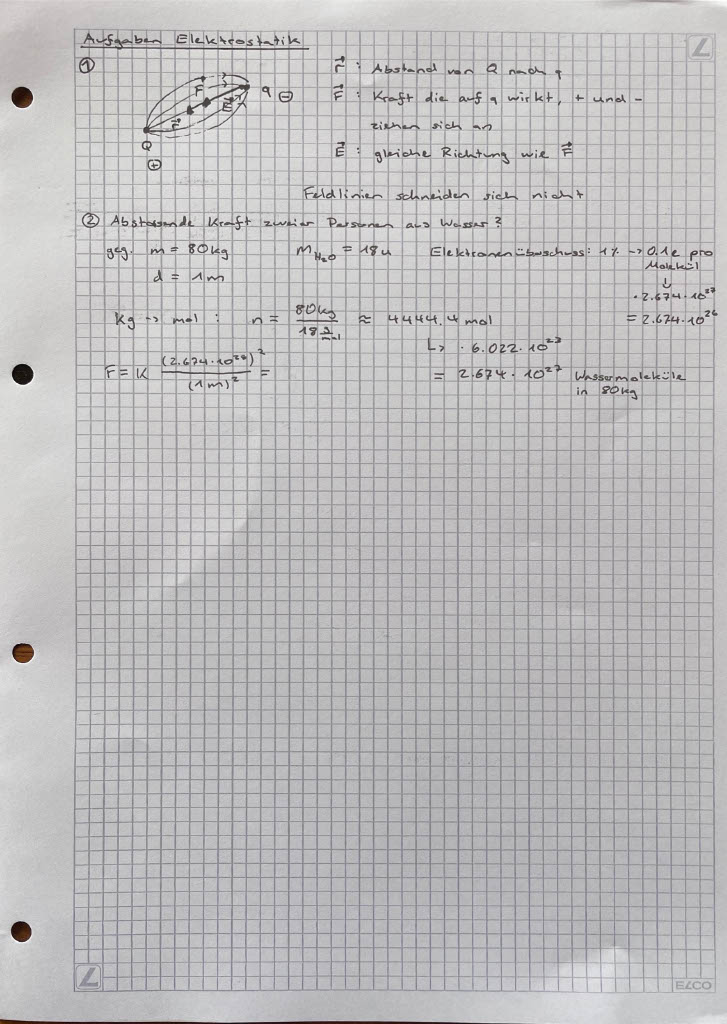 Aufgaben Elektrostatik
①
F
q ⊖
E⃗
r⃗
Q
⊕
r⃗ : Abstand von Q nach q
F⃗ : Kraft die auf q wirkt, + und -
ziehen sich an
E⃗ : gleiche Richtung wie F⃗
Feldlinien schneiden sich nicht
② Abstossende Kraft zweier Personen aus Wasser?
geg. m = 80kg M_H₂O = 18u Elektronenüberschuss: 1% -> 0.1e pro
Molekül
↓
d = 1m
· 2.674 · 10²⁷
= 2.674 · 10²⁶
kg -> mol : n = 80kg / 18 g/mol ≈ 4444.4 mol
↳ · 6.022 · 10²³
= 2.674 · 10²⁷ Wassermoleküle
in 80kg
F = K (2.674 · 10²⁶)² / (1m)² =
L
ELCO